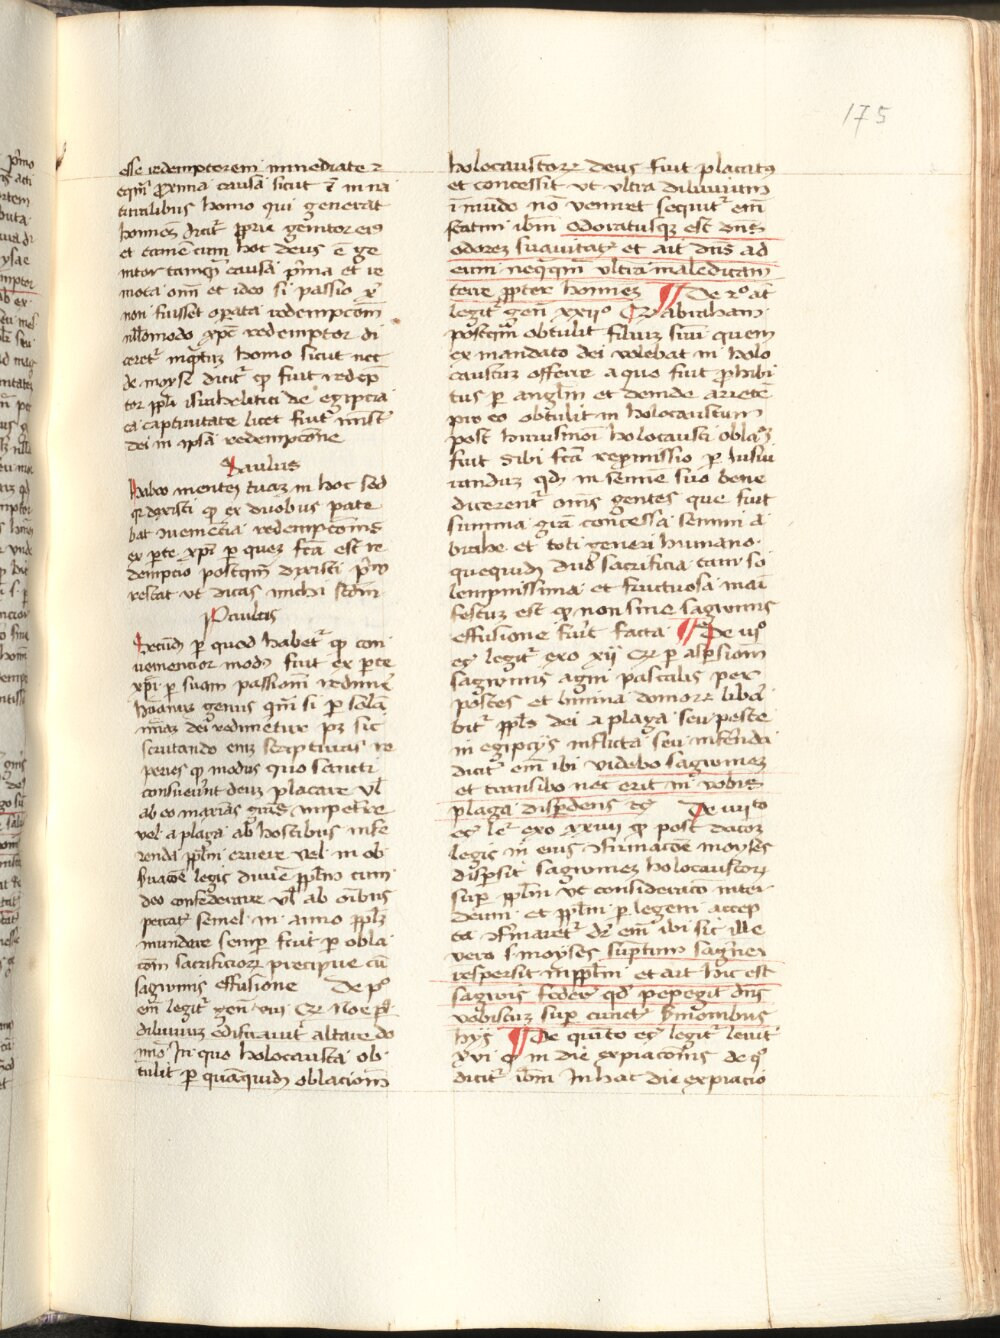 175
esse redemptorem immediate ⁊
tamqͫ proxima causa sicut ē in na
turalibus homo qui generat
hominē dicitʳ proprie genitor eiꝰ
et tamē cum hoc deus ē ge
nitor tamqͫ causa pʳma et re
mota omī et ideo si passio xͥ
non fuisset oꝑata redempcōm
nullomodo xp̄c redemptor di
ceretʳ inqͣtuꝫ homo sicut nec
de moyse dicitʳ qꝫ fuit redēp
tor ppl̄i israhelitici de egipcia
ca captiuitate licet fuitʳ minist
dei in ipsa redempcōne
Saulus
habeo menteꝫ tuaꝫ in hoc sed
qꝛ dixisti qꝫ ex duobus pate
bat ꝯueniēcia redempcōnis
ex ꝑte xp̄i ꝑ queꝫ fc̄a est re
dempcio postqͫ dixisti pʳm
restat vt dicas michi scd̄m
Paulus
Secūdꝫ ꝑ quod habetʳ qꝫ con
ueniencior modꝰ fuit ex ꝑte
xp̄i ꝑ suam passionē redimē
humanū genus qͫ si ꝑ solam
mīaꝫ dei redimeretur pꝫ sic
scrutando enīꝫ scripturas re
peries qꝫ modus quo sancti
consueuerūt deuꝫ placare vl̄
ab eo maximas grās impetrare
vel a plaga ab hostibus infe
renda ppl̄m eruere vel in ob
seruacōe legis diuīe ppl̄m cum
deo confederare vl̄ ab oībus
peccatꝭ semel in anno ppl̄m
mundare semper fuit ꝑ obla
cōm sacrificioꝝ precipue cū
sagwinis effusione De pº
em̄ legitʳ geñ viii Qꝛ Noe pꝰ
diluuiuꝫ edificauitʳ altare do
mīo In quo holocausta ob
tulit ꝑ quāquidꝫ oblacionē
holocaustoꝝ deus fuit placatꝰ
et concessit vt vltra diluuium
ī mūdo nō veniret sequitʳ em̄
statim ibm̄ odoratusqꝫ est dn̄s
odoreꝫ suauitatꝭ et ait dn̄s ad
eum neqͣqͫ vltra maledicam
terre ꝓpter homineꝫ ¶ De 2º āt
legitʳ geñ xxiiº Qꝛ abraham
postqͫ obtulit filiuꝫ suū quem
ex mandato dei volebat in holo
caustuꝫ offerre a quo fuit prohibi
tus ꝑ angl̄m et deinde arietē
pro eo obtulit in holocaustum
post huiusmōi holocausti oblacōꝫ
fuit sibi fc̄a repromissio ꝑ iusiu
randuꝫ qdꝫ in semīe suo bene
dicerentʳ omēs gentes que fuit
summa grā concessa semini a
brahe et toti generi humano
quequidꝫ duo sacrificia tam so
lempnissima et fructuosa mani
festuꝫ est qꝫ non sine sagwinis
effusione fuerūt facta ¶ De iiiº
eꝫ legitʳ exo xij Qꝛ ꝑ aspersionē
sagwinis agni pascalis per
postes et limina domoꝝ libera
bitʳ ppl̄s dei a plaga seu peste
in egipcijs inflicta seu inferenda
dicitʳ em̄ ibi videbo sagwineꝫ
et transibo nec erit in vobis
plaga disperdens eꝫ De iiii to
eꝫ leʳ exo xxiiii qꝫ post datoꝫ
legis in eius ꝯfirmacōe moyses
dispersit sagwineꝫ holocaustoꝝ
super ppl̄m vt consideracio inter
deum et ppl̄m ꝑ legem accep
ta ꝯfirmaretʳ dʳ em̄ ibi sic ille
vero s. moyses sumptum sagneꝫ
respersit in ppl̄m et ait hic est
sagwis federꝭ qd̄ pepegit dn̄s
vobiscuꝫ super cunctꝭ sermonibus
hijs ¶ De quīto eꝫ legitʳ leuit
xvi qꝫ in die expiacōnis de qº
dicitʳ ibm̄ In hac die expiacio